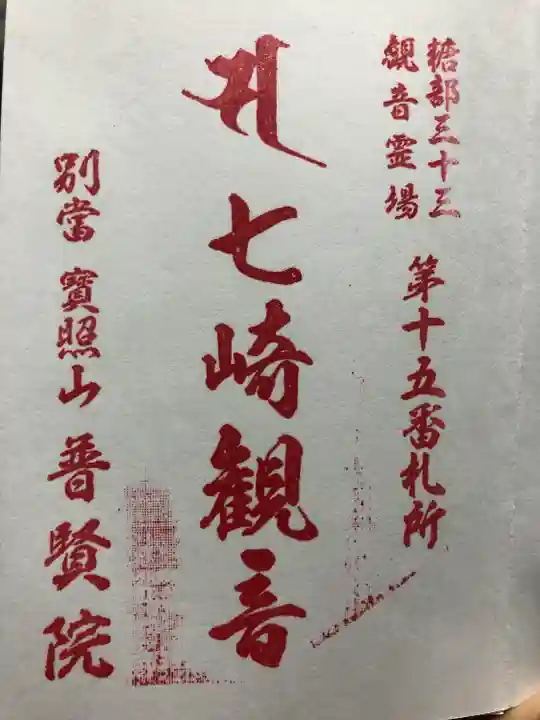 糖部三十三
観音霊場
第十五番札所
七崎観音
別當 寳照山 普賢院